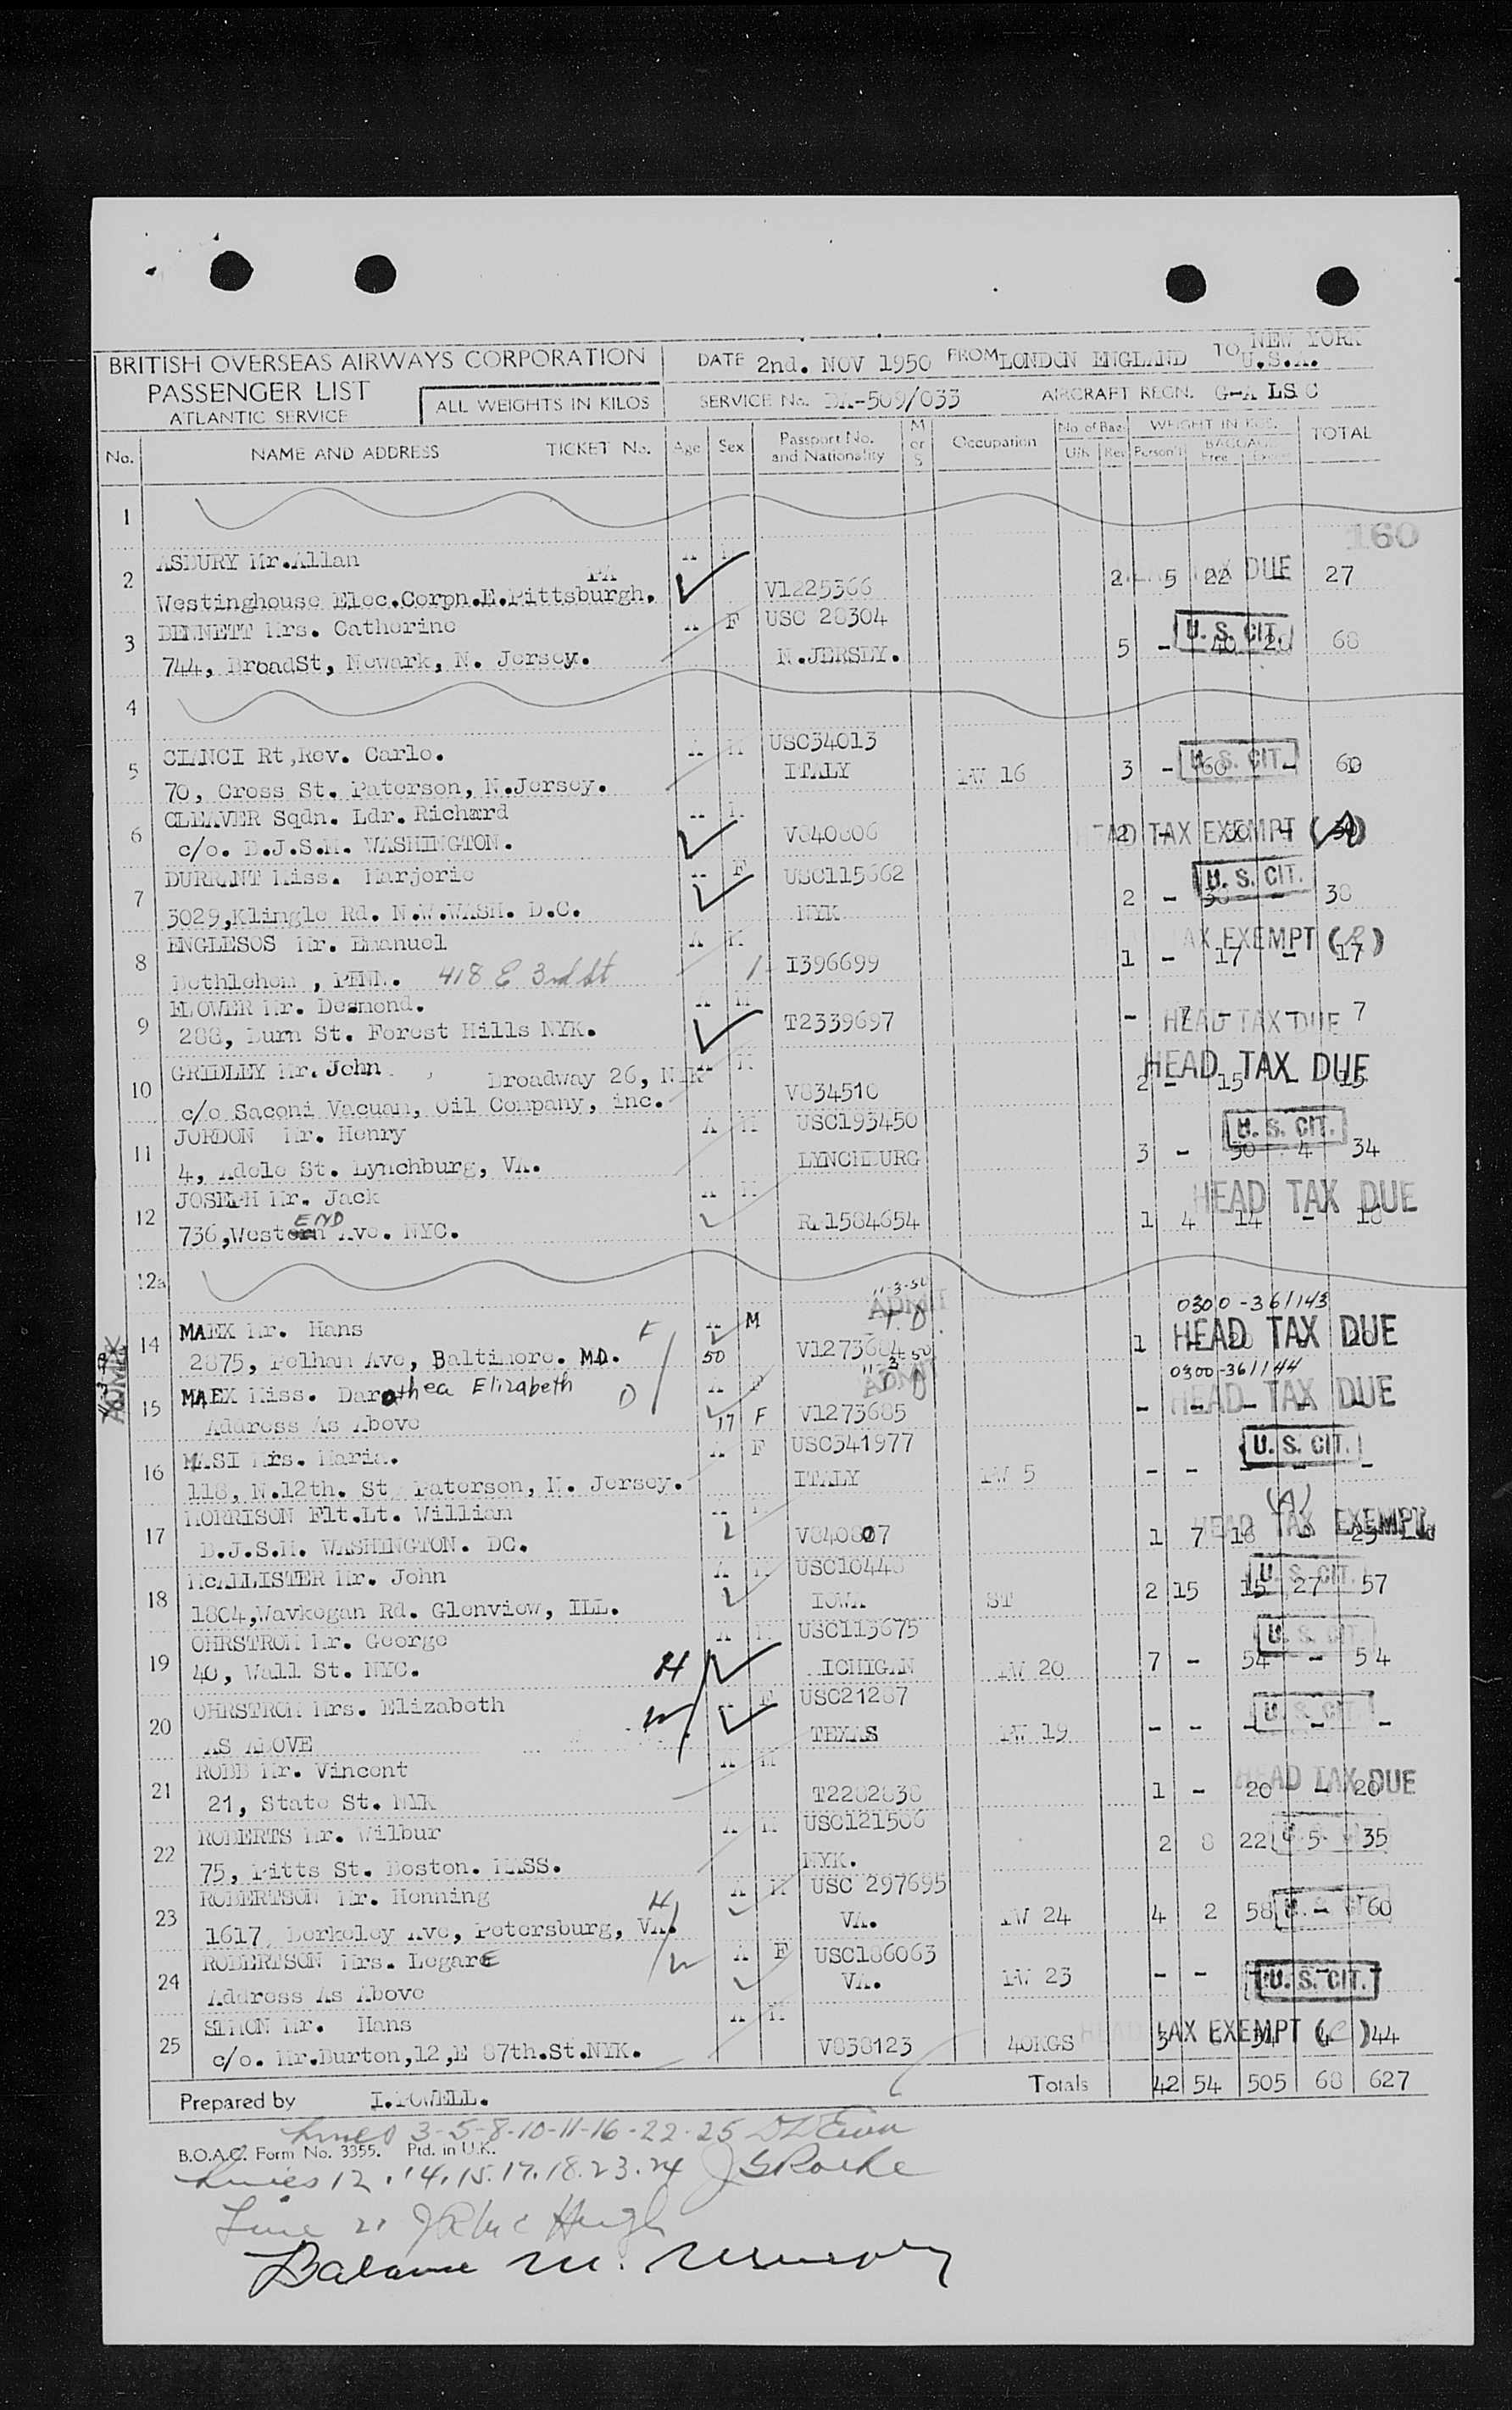 BRITISH OVERSEAS AIRWAYS CORPORATION
PASSENGER LIST
ATLANTIC SERVICE
ALL WEIGHTS IN KILOS
DATE 2nd. NOV 1950 FROM LONDON ENGLAND TO NEW YORK U.S.A.
SERVICE No. 509/033 AIRCRAFT REGN. G-A LS C
No. NAME AND ADDRESS TICKET No. Age Sex Passport No. and Nationality M or S Occupation No. of Bag WEIGHT IN KGS. BAGGAGE Free TOTAL
1
160
2 ASBURY Mr.Allan
Westinghouse Eloc.Corpn.E.Pittsburgh. PA V1225366 2 5 22 DUE 27
3 BENNETT Mrs. Catherine A F USC 28304 U. S. CIT.
744, BroadSt, Newark, N. Jersey. N.JERSEY. 5 - 40 20 68
4
5 CIANCI Rt,Rev. Carlo. A M USC34013 U. S. CIT.
70, Cross St. Paterson, N.Jersey. ITALY 16 3 - 60 - 60
6 CLEAVER Sqdn. Ldr. Richard
c/o. B.J.S.M. WASHINGTON. V840806 2 HEAD TAX EXEMPT (A)
7 DURRANT Miss. Marjorie F USC115662 U. S. CIT.
3029,Klingle Rd. N.W.WASH. D.C. NYK 2 - 38 - 38
8 ENGLESOS Mr. Emanuel A M TAX EXEMPT
Bethlehem , PENN. 418 E 3rd St I396699 1 - 17 - 17
9 FLOWER Mr. Desmond. M
288, Burn St. Forest Hills NYK. T2339697 - 7 HEAD TAX DUE 7
10 GRIDLEY Mr. John Broadway 26, NYK HEAD TAX DUE
c/o Saconi Vacuum, Oil Company, inc. V834510 2 - 15 - 15
11 JORDON Mr. Henry A M USC193450 U. S. CIT.
4, Adele St. Lynchburg, VA. LYNCHBURG 3 - 30 4 34
12 JOSEPH Mr. Jack HEAD TAX DUE
736,Western END Ave. NYC. 1584654 1 4 14 - 18
12a
11-3-50 0300-361143
14 MAEX Mr. Hans F M ADMIT HEAD TAX DUE
2875, Pelham Ave, Baltimore. MD. 50 V1273684 1
0300-361144
15 MAEX Miss. Darothea Elizabeth D F ADMIT HEAD TAX DUE
Address As Above 17 F V1273685 -
16 MASI Mrs. Maria. A F USC341977 U. S. CIT.
118, N.12th. St Paterson, N. Jersey. ITALY 5 - - - - -
17 MORRISON Flt.Lt. William HEAD TAX EXEMPT (A)
B.J.S.M. WASHINGTON. DC. V840807 1 7 18
18 McALLISTER Mr. John A M U. S. CIT.
1804,Wavkegan Rd. Glenview, ILL. IOWA ST 2 15 15 27 57
19 OHRSTROM Mr. George A M USC113675 U. S. CIT.
40, Wall St. NYC. H ICHIGAN 20 7 - 54 - 54
20 OHRSTROM Mrs. Elizabeth W F USC21287 U. S. CIT.
AS ABOVE TEXAS 19 - - - - -
21 ROBB Mr. Vincent A M HEAD TAX DUE
21, State St. NYK T2282838 1 - 20 - 20
22 ROBERTS Mr. Wilbur A M USC121506
75, Pitts St. Boston. MASS. NYK. 2 8 22 5 35
23 ROBERTSON Mr. Henning H A M USC 297695
1617, Berkeley Ave, Petersburg, VA. VA. 24 4 2 58 - 60
24 ROBERTSON Mrs. Legare W A F USC186063 U. S. CIT.
Address As Above VA. 23 - -
25 SIMON Mr. Hans A M TAX EXEMPT
c/o. Mr.Burton,12,E 87th.St.NYK. V838123 40KGS 3 44
Totals 42 54 505 68 627
Prepared by I.POWELL.
Lines 3-5-8-10-11-16-22-25
B.O.A.C. Form No. 3355. Ptd. in U.K.
Lines 12.14.15.17.18.23.24
Line 21 J R Mc Hugh
Balance